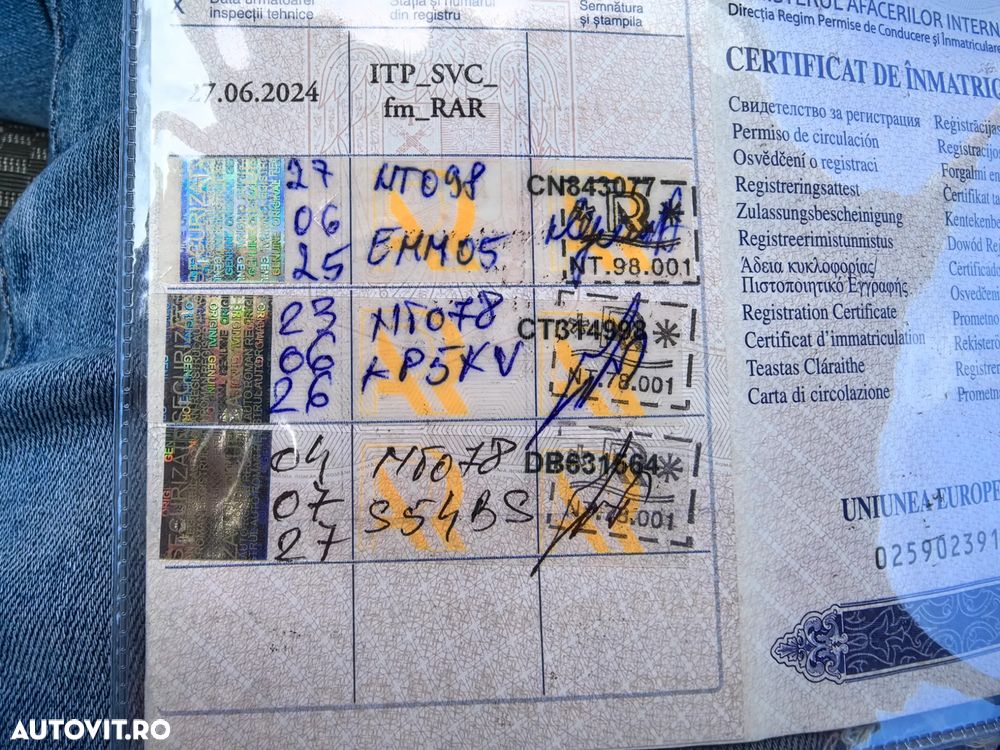 X
Data următoarei
inspecții tehnice
Stația și numărul
din registru
Semnătura
și ștampila
27.06.2024
ITP_SVC_
fm_RAR
27
06
25
NT098
EMM05
CN843077
R
NT.98.001
23
06
26
NT078
AP5XV
CT314998
NT.78.001
04
07
27
NT078
S54BS
DB631664
NT.78.001
MINISTERUL AFACERILOR INTERN
Direcția Regim Permise de Conducere și Înmatriculare
CERTIFICAT DE ÎNMATRIC
Свидетелство за регистрация
Permiso de circulación
Osvědčení o registraci
Registreringsattest
Zulassungsbescheinigung
Registreerimistunnistus
Άδεια κυκλοφορίας/
Πιστοποιητικό Εγγραφής
Registration Certificate
Certificat d'immatriculation
Teastas Cláraithe
Carta di circolazione
Reģistrācijas
Registracijos
Forgalmi en
Ċertifikat ta
Kentekenb
Dowód Re
Certificado
Osvedčen
Prometno
Rekisterö
Registrer
Prometna
UNIUNEA EUROPE
025902391
AUTOVIT.RO